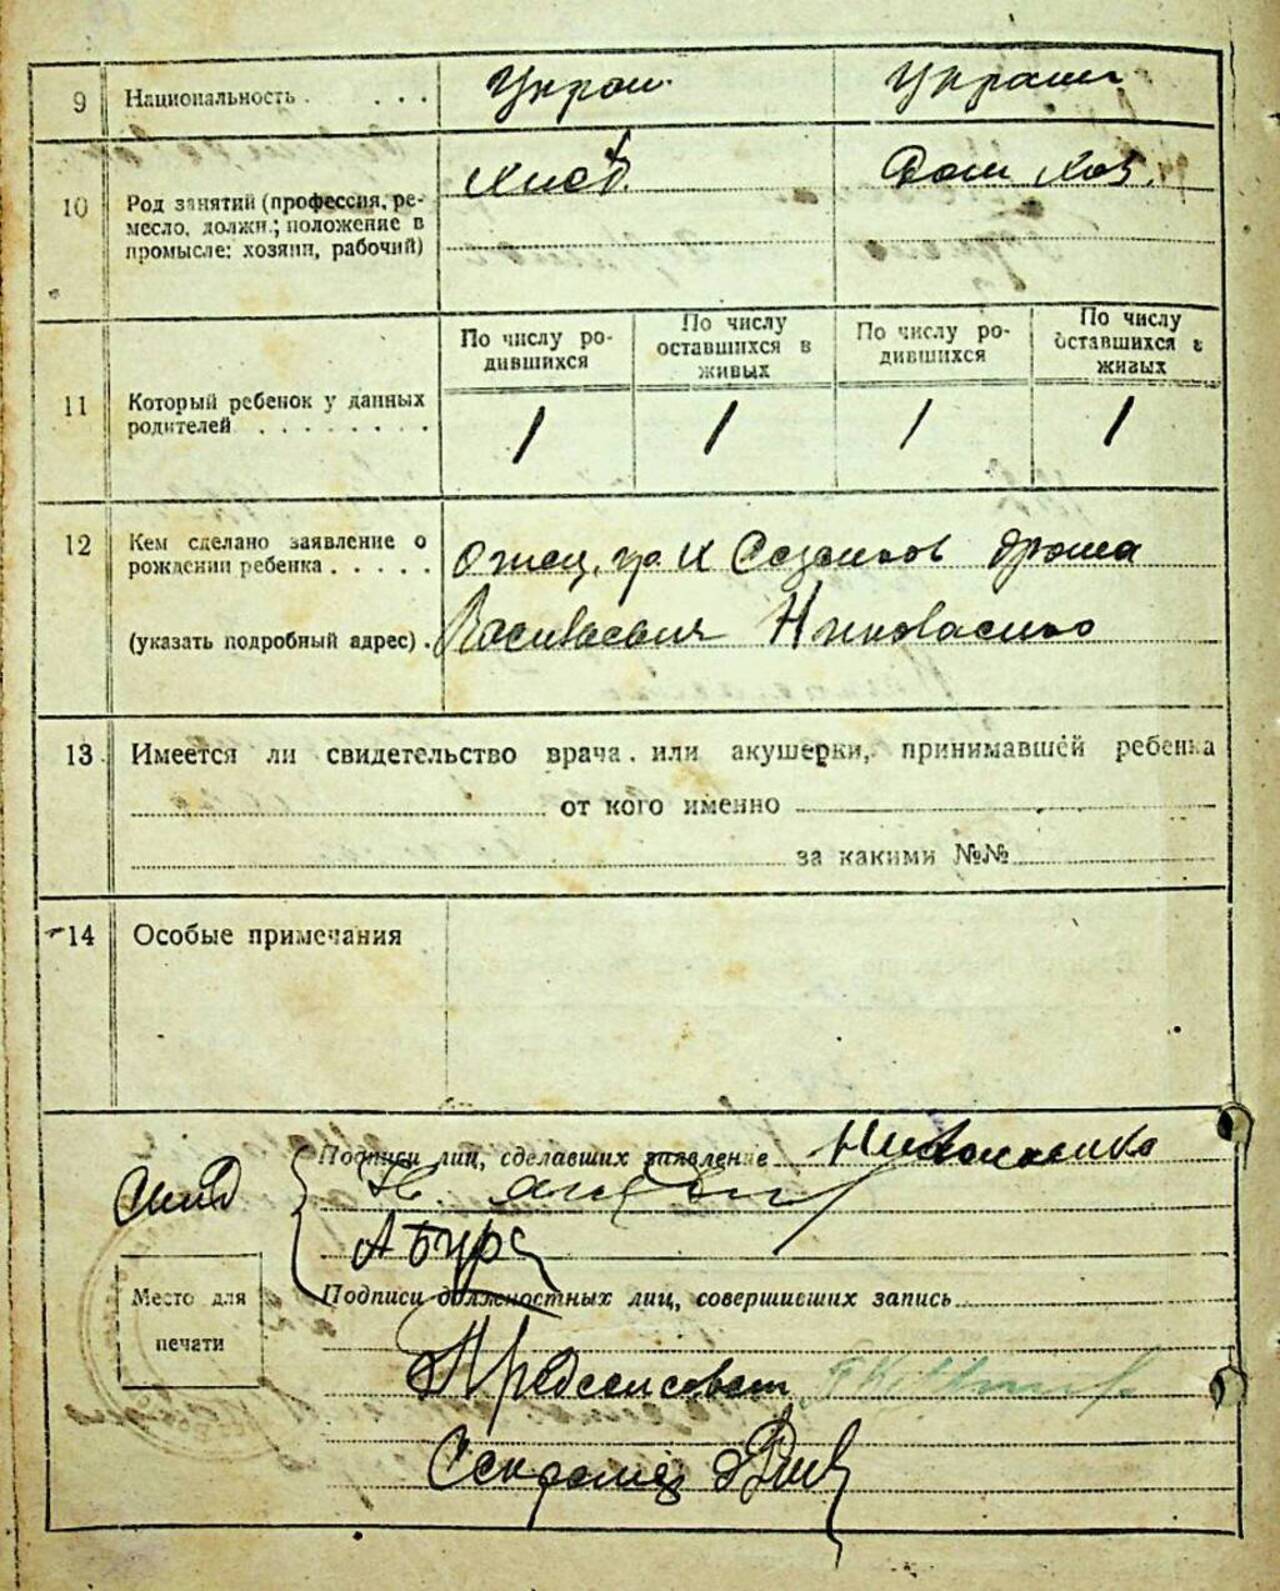 9 Национальность . . . . Украи. Украин
10 Род занятий (профессия, ре-
месло, должн.; положение в
промысле: хозяин, рабочий)
хлеб. Дом хоз.
По числу ро-
дившихся
По числу
оставшихся в
живых
По числу ро-
дившихся
По числу
оставшихся в
живых
11 Который ребенок у данных
родителей . . . . . . . .
1 1 1 1
12 Кем сделано заявление о
рождении ребенка . . . . .
(указать подробный адрес) .
Отец, гр. х
Васильевич Николаенко
13 Имеется ли свидетельство врача или акушерки, принимавшей ребенка
от кого именно
за какими №№
14 Особые примечания
Подписи лиц, сделавших заявление Николаенко
Место для
печати
Подписи должностных лиц, совершивших запись
Предсельсовет
Секретарь